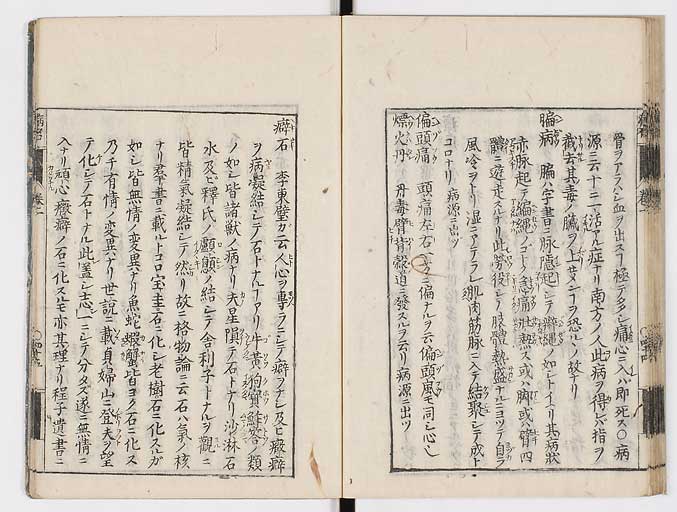 骨ヲアラハシ血ヲ出スヿ極テ多シ痛心ニ入ハ即死ス○病
源ニ云十ニ一活アル症ナリ南方ノ人此病ヲ得レバ指ヲ
截去其毒ノ臓ヲ上センヿヲ恐ルヽノ故ナリ
腨病 字書ニ脉隠起シテ辮縄ノ如シトイヘリ其病状
赤脉起テ編縄ノゴトク急痛壮熱ス或ハ脚或ハ臂四
體ニ遊走スルナリ此労役シ肢體熱盛ナルニヨツテ自ラ
風冷ヲトリ湿ニアテラレ肌肉筋脉ニ入テ結聚シテ成ト
コロナリ 病源ニ出ツ
偏頭痛 頭痛左右一方ニ偏ナルヲ云偏頭風モ同シ心
熛火丹 丹毒臂背穀道ニ發スルヲ云リ病源ニ出ツ
癖石 李東璧カ云人心ヲ専ラニシテ癖ヲナシ及ヒ癥癖
ヲ病凝結シテ石トナルナアリ牛黄狗寶鮓荅ノ類
ノ如シ皆諸獣ノ病ナリ夫星隕テ石トナリ沙淋石
水及ヒ釋氏ノ顱顖ノ結シテ舎利子トナルヲ觀ニ
皆精氣凝結シテ然リ故ニ格物論ニ云石ハ氣ノ核
ナリ群書ニ載ルトコロ宝圭石ニ化シ老樹石ニ化スルガ
如シ皆無情ノ変異ナリ魚蛇蝦蟹皆ヨク石ニ化ス
乃チ有情ノ変異ナリ世説ニ載貞婦山ニ登夫ヲ望
テ化シテ石トナル此蓋シ志一ニシテ分タズ遂ニ無情ニ
入ナリ頑心癥癖ノ石ニ化スルモ亦其理ナリ程子遺書ニ